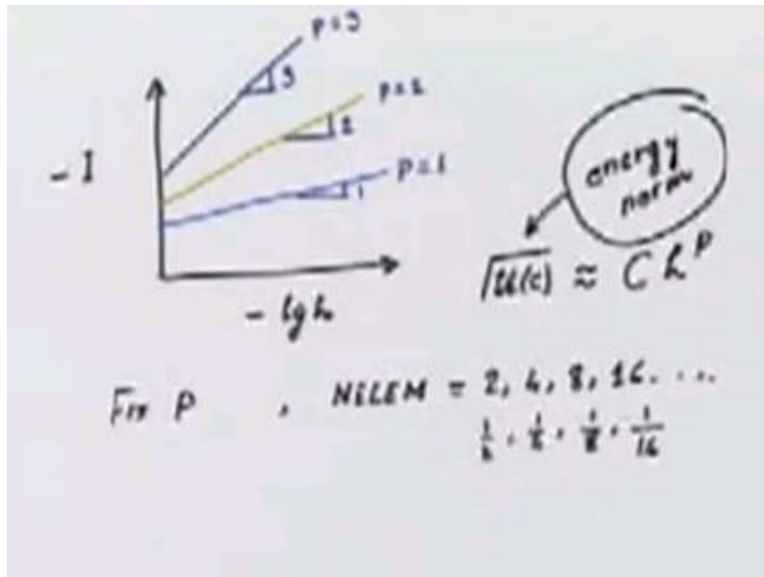 p=3
3
p=2
2
- I
p=1
1
energy
norm
√U(e) ≈ C h^p
- lg h
Fix P , NELEM = 2, 4, 8, 16. ...
1/2, 1/4, 1/8, 1/16